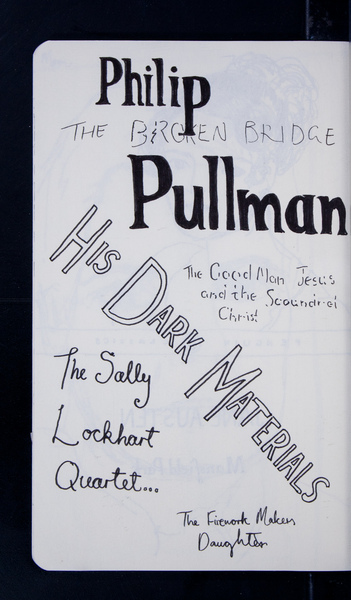 Philip
THE BROKEN BRIDGE
Pullman
The Good Man Jesus
and the Scoundrel
Christ
HIS DARK MATERIALS
The Sally
Lockhart
Quartet...
The Firework Makers
Daughter
AUSTEN